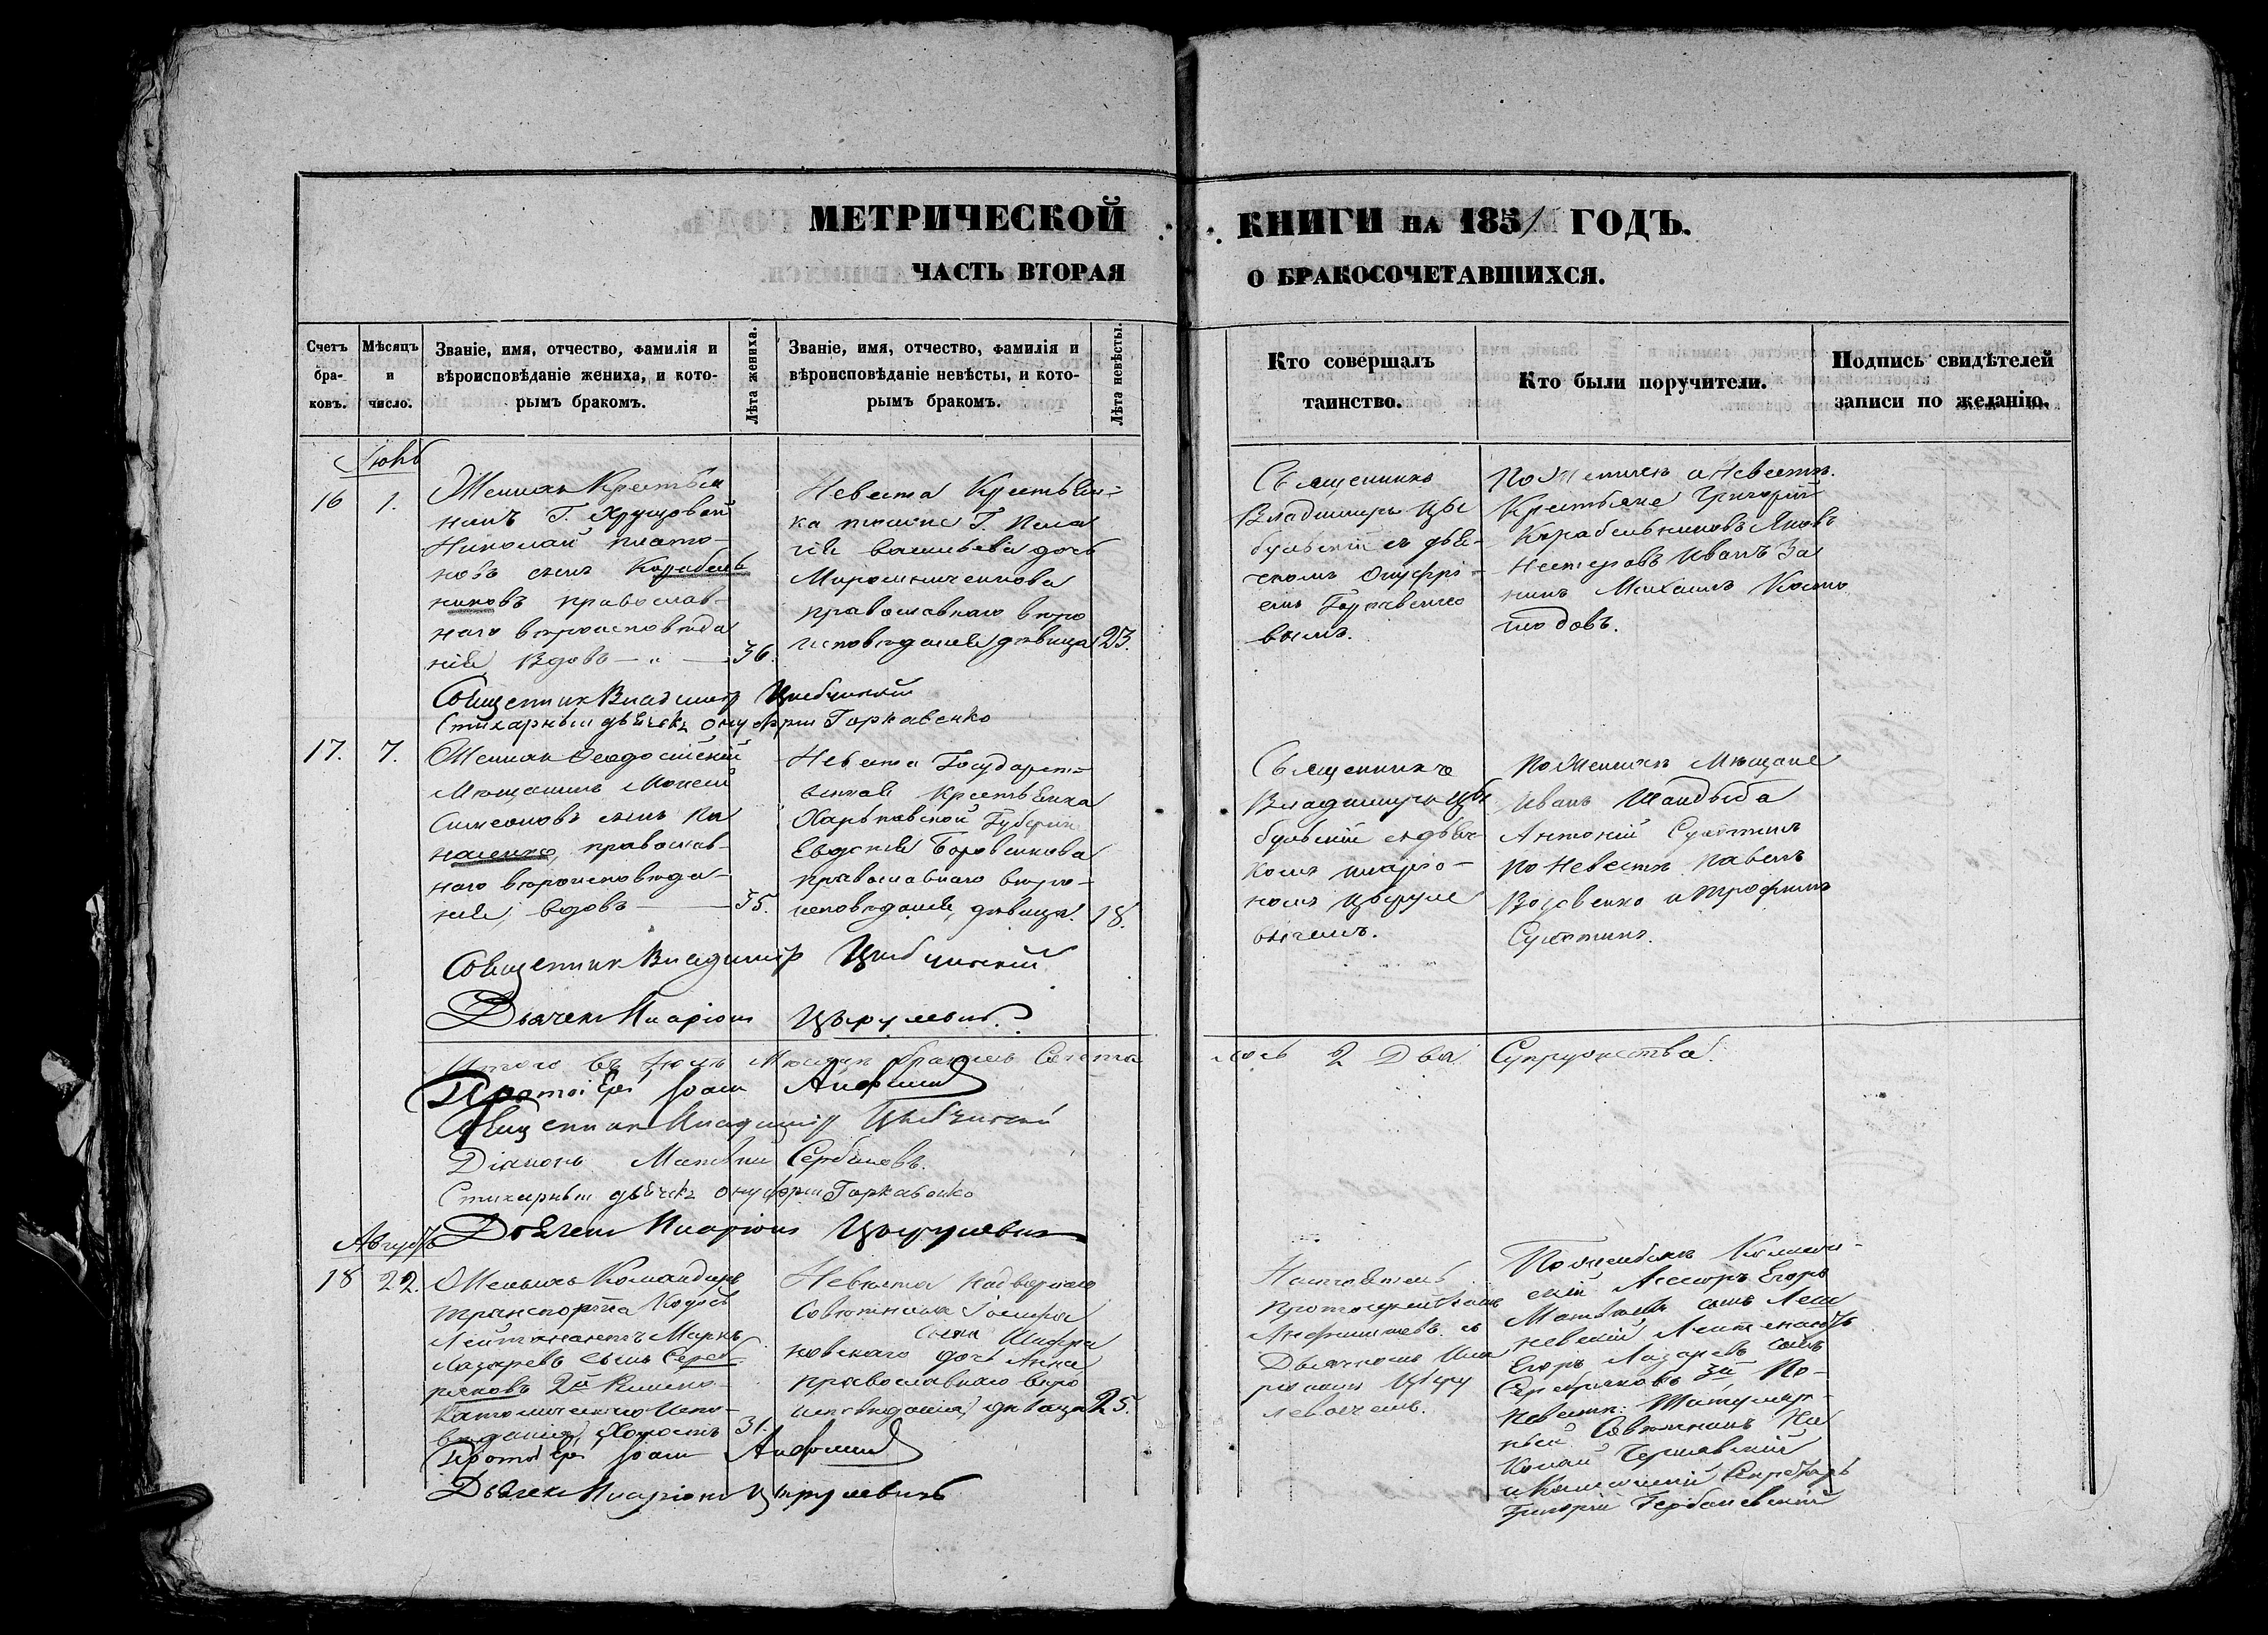 МЕТРИЧЕСКОЙ
КНИГИ НА 1851 ГОДЪ.
ЧАСТЬ ВТОРАЯ
О БРАКОСОЧЕТАВШИХСЯ.
Счетъ бра-ковъ.
Мѣсяцъ и число.
Званіе, имя, отчество, фамилія и
вѣроисповѣданіе жениха, и кото-
рымъ бракомъ.
Лѣта жениха.
Званіе, имя, отчество, фамилія и
вѣроисповѣданіе невѣсты, и кото-
рымъ бракомъ.
Лѣта невѣсты.
Кто совершалъ
таинство.
Кто были поручители.
Подпись свидѣтелей
записи по желанію.
16
1.
Женихъ Крестья
нинъ Г. Хрущовой
Николай Плато-
новъ сынъ Корабель
никовъ православ-
наго вѣроисповѣда
нія Вдовъ — 36.
Невеста Крестьян-
ка Г. Пела
гія Васильева дочь
Мирошниченкова
православнаго вѣро
исповѣданія дѣвица 23.
Священникъ
Владимиръ Цы
бульскій съ дья-
чкомъ Онуфрі-
емъ Горкавенко
вымъ.
По Женихѣ и Невестѣ
Крестьяне Григорій
Корабельниковъ Яковъ
Нестеровъ Иванъ За
Михаилъ
Священник Владимир Цибульский
Стихарный дьячекъ Онуфрій Горкавенко
17.
7.
Женихъ Феодосійскій
Мѣщанинъ Моисей
Симеоновъ сынъ Па
насенко, православ-
наго вѣроисповѣда-
нія, вдовъ — 35.
Невеста Государст-
венная Крестьянка
Харьковской Губерніи
Евдокія Боровенкова
православнаго вѣро-
исповѣданія, дѣвица. 18.
Священникъ
Владимиръ Цы
бульскій съ дьяч-
комъ Иларіо-
номъ Цыруле
вичемъ.
По Женихѣ Мѣщане
Иванъ
Антоній
По Невестѣ Павелъ
и Трофимъ
Священник Владимір Цибульский
Дьячек Иларіон Цырулевич.
Итого въ Іюлѣ Мѣсяцѣ бракомъ Сочета
лось 2 Два Супружества.
Протоіерей Іоан
Священник Владимір Цыбульский
Діаконъ Матвій Сербиновъ.
Стихарный дьячекъ Онуфрій Горкавенко
Дьячек Иларіон Цырулевич
Августъ
18
22.
Женихъ Командиръ
транспорта Кодосъ
Лейтенантъ Маркъ
Лазаревъ сынъ Сереб
ряковъ 2й Римско-
Католическаго Испо-
вѣданія, Холостъ 31.
Невѣста Надворнаго
Совѣтника Іосифа
сына Шафра
новскаго дочь Анна
православнаго вѣро
исповѣданія, дѣвица 25.
Настоятель
Протоіерей Іоаннъ
съ
Дьячкомъ Ила
ріономъ Цыру
левичемъ.
По Женихѣ Коллеж-
скій Ассесоръ Егоръ
Матвѣевъ сынъ
Лейтенантъ
Егоръ Лазаревъ сынъ
Серебряковъ 3й, По
Невестѣ: Титуляр-
ный Совѣтникъ Ни
колай Чернявскій
и Коллежскій Секретарь
Григорій
Протоіерей Іоан
Дьячек Иларіон Цырулевичъ